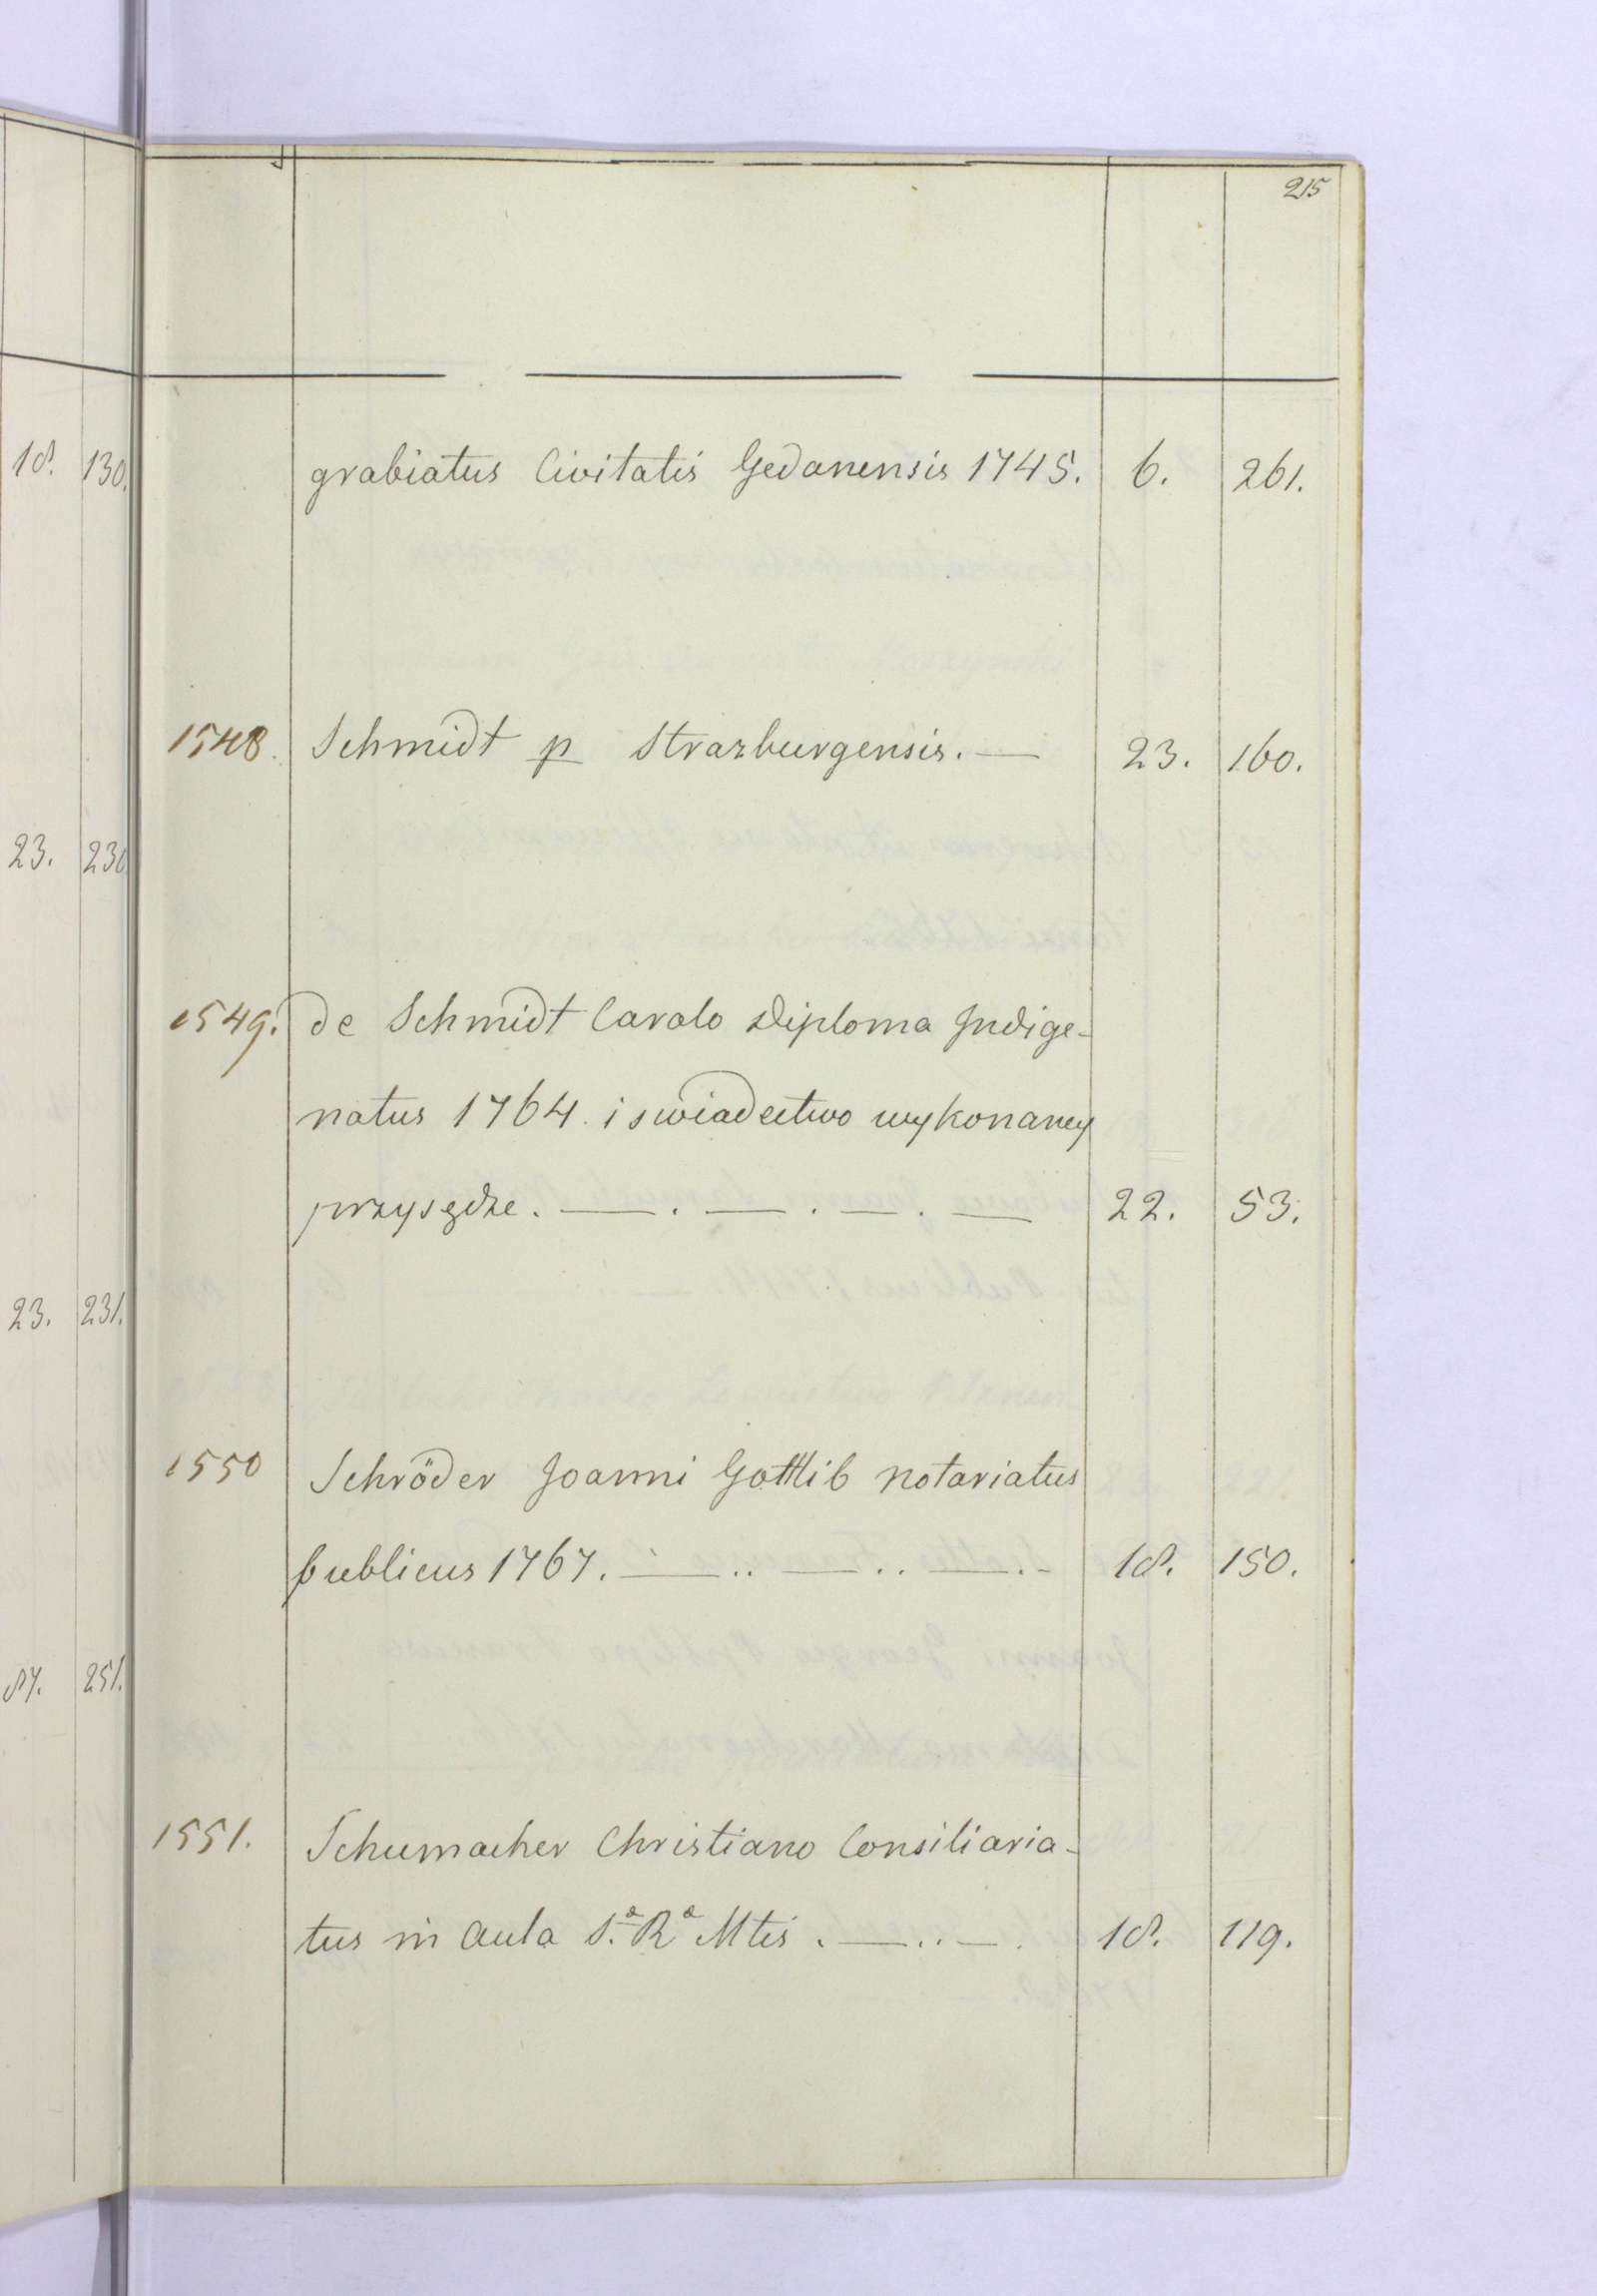 215
18. 130.
23. 230.
23. 231.
87. 251.
grabiatus Civitatis Gedanensis 1745. 6. 261.
1548. Schmidt p Strazburgensis. — 23. 160.
1549. de Schmidt Carolo Diploma Indige-
natus 1764. i swiadectwo wykonaney
przysędze. — . — . — . — 22. 53.
1550 Schröder Joanni Gottlib notariatus
publicus 1767. — .. — .. — . - 18. 150.
1551. Schumacher Christiano Consiliaria-
tus in aula S.ᵃ Rᵃ Mtis . — .. — . 18. 119.